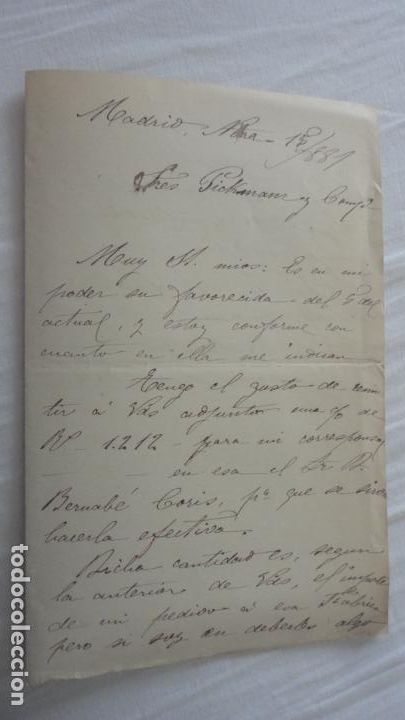 Madrid, 15/881
Sres Pickman y Compª
Muy Sr. mios: Es en mi
poder su favorecida del 9 del
actual, y estoy conforme con
cuanto en ella me indican
Tengo el gusto de remi
tir á Vds adjunto una de
1.212 para mi corresponsal
en esa el Sr D.
Bernabé Coris, pª que se sirva
hacerla efectiva.
Dicha cantidad es, segun
la anterior de Vds, el importe
de mi pedido á esa Fabrica
pero si soy en deberles algo
todocoleccion